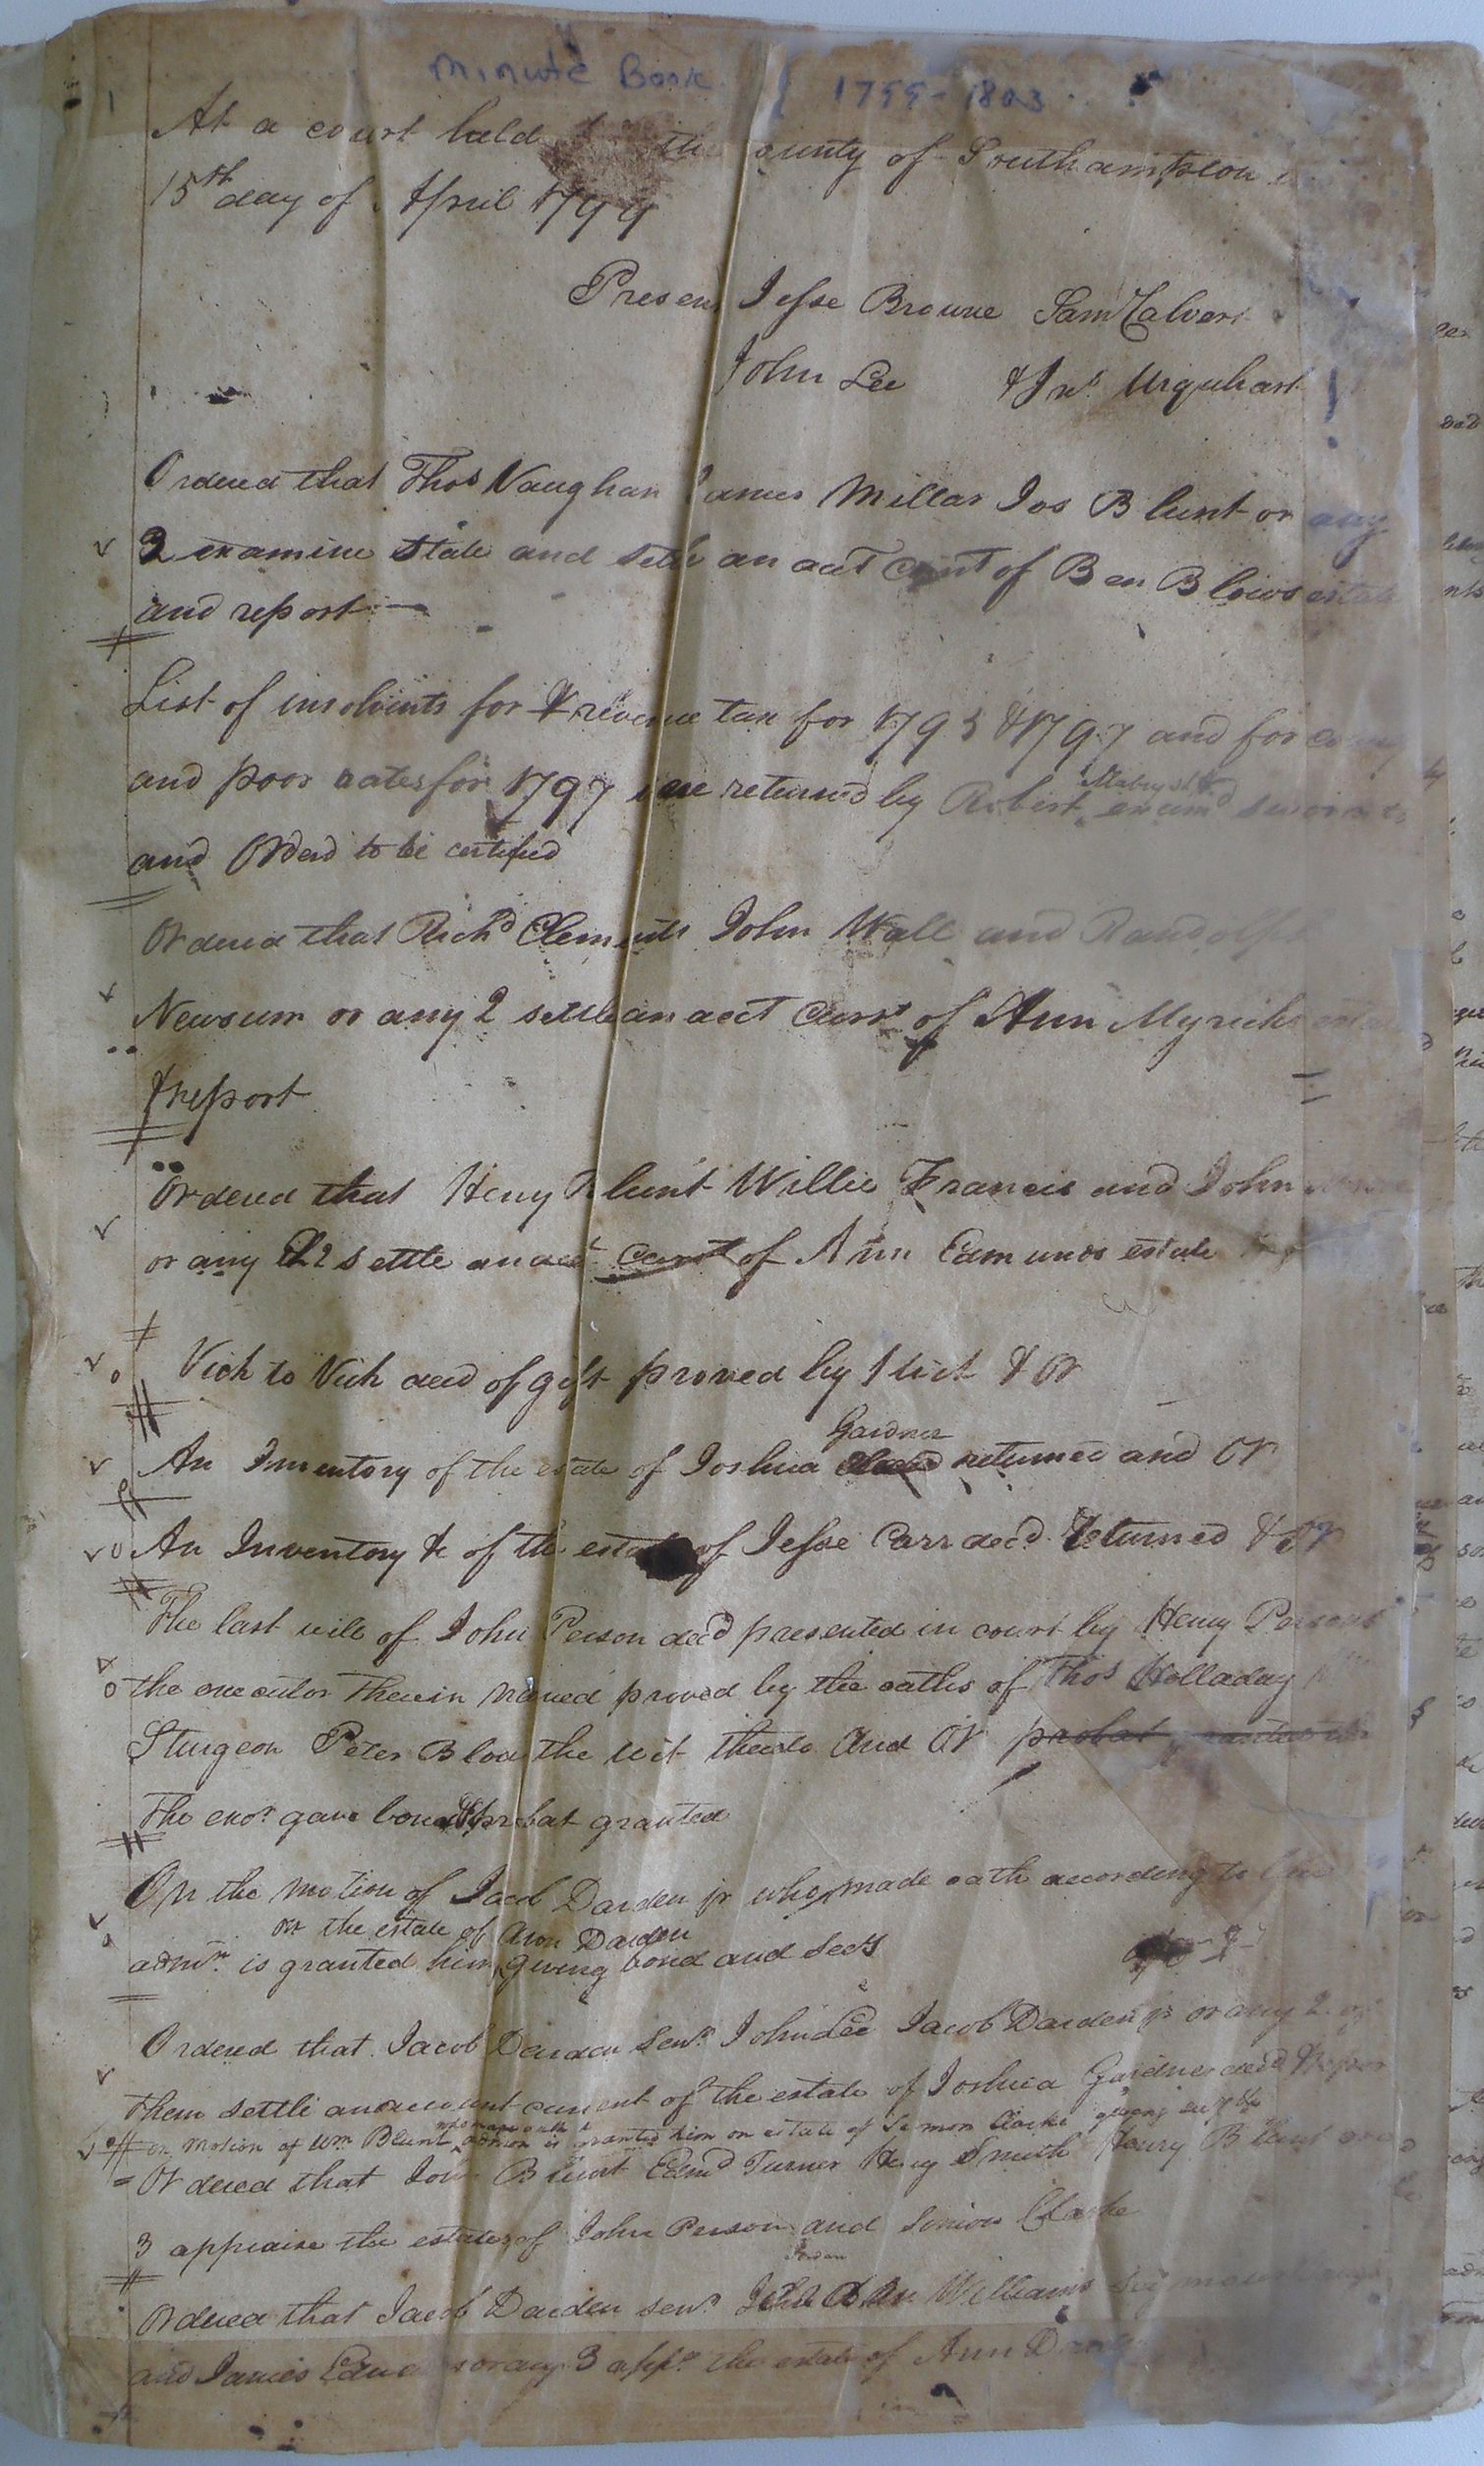 Minute Book 1799-1803
1
At a court held the County of Southampton
15th day of April 1799
Present Jesse Browne Saml Calvert
John Lee & Jno. Urquhart
Ordered that Thos Vaughan James Millar Jos Blunt or any
2 examine State and settle an acct Curnt of Ben Blows estate
and report
List of insolvents for revenue tax for 1795 & 1797 and for
and poor rates for 1797 were returned by Robert Mabry examd sworn to
and Orderd to be certified
Ordered that Richd Clements John Wall and Randolph
Newsum or any 2 settle an acct Curnt of Ann Myricks estate
& report
Ordered that Henry Blunt Willie Francis and John
or any 2 settle an acct Curnt of Ann Edmunds estate
Vick to Vick deed of gift proved by 1 wit & Or
An Inventory of the estate of Joshua Gardner returned and Or
An Inventory &c of the estate of Jesse Carr decd. returned & Or
The last will of John Person decd presented in court by Henry Persons
the executor therein named proved by the oaths of Thos Holladay
Sturgeon Peter Blow the wit thereto And Or probat
The exor. gave bond & probat granted
On the motion of Jacob Darden jr who made oath according to law
on the estate of Aron Darden
admr. is granted him giving bond and secy
Ordered that Jacob Darden Senr. John Lee Jacob Darden jr or any 2 of
them settle an account current of the estate of Joshua Gardner decd & report
on Motion of Wm Blunt who made oath admon is granted him on estate of Simon Clarke giving secy &c
Ordered that Blunt Edmd Turner Henry Smith Henry Blunt
3 appraise the estates of John Person and Simon Clarke
Ordered that Jacob Darden senr. Jordan Williams
and James or any 3 appr. the estate of Ann